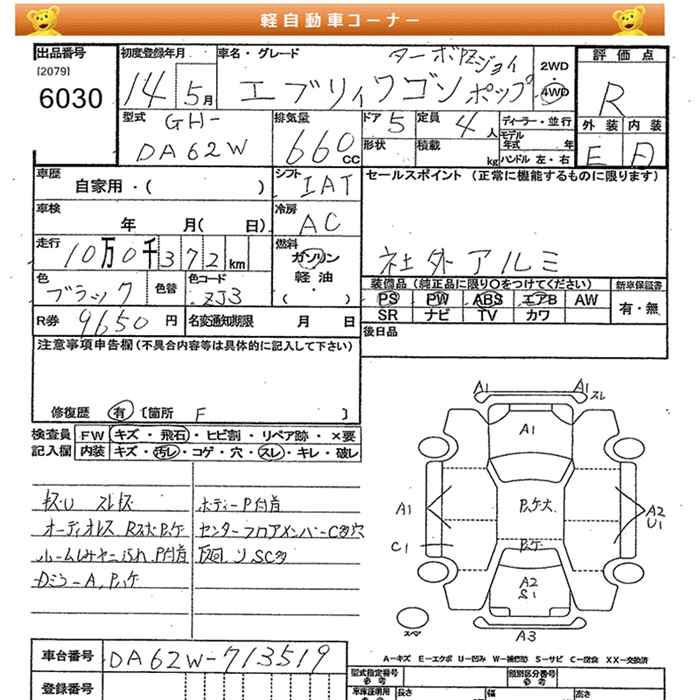 軽自動車コーナー
出品番号
[2079]
6030
初度登録年月
14 5月
車名・グレード
ターボPZジョイ
エブリィワゴン ポップ
2WD
4WD
評価点
R
外装 内装
E D
型式
GH-
DA62W
排気量
660cc
ドア 5
定員 4人
ディーラー・並行
形状
積載 kg
モデル年式 年
ハンドル 左・右
車歴
自家用・( )
シフト
IAT
セールスポイント (正常に機能するものに限ります)
社外アルミ
車検
年 月( 日)
冷房
AC
走行
10万0千372km
燃料
ガソリン
軽油
( )
色
ブラック
色替
色コード
ZJ3
装備品(純正品に限り○をつけてください)
新車保証書
PS PW ABS エアB AW
有・無
SR ナビ TV カワ
R券 9650円
名変通知期限 月 日
後日品
注意事項申告欄(不具合内容等は具体的に記入して下さい)
修復歴 有 [箇所 F ]
検査員
記入欄
FW キズ・飛石・ヒビ割・リペア跡・×要
内装 キズ・汚レ・コゲ・穴・スレ・キレ・破レ
キズU スレキズ
オーディオレス Rスピ大P.ケ
ルームシミヤニ汚れ P付着
DミラーA,P.ケ
ボディーP付着
センターフロアメンバーC多穴
下回り SC多
A1
A1
スレ
A1
A1
P.ケ大
A2
U1
C1
P.ケ
A2
S1
スペア
A3
車台番号 DA62W-713519
A…キズ E…エクボ U…凹み W…補修跡 S…サビ C…腐食 XX…交換済
登録番号
型式指定番号
参考
類別区分番号
参考
車庫証明用
長さ
幅
高さ